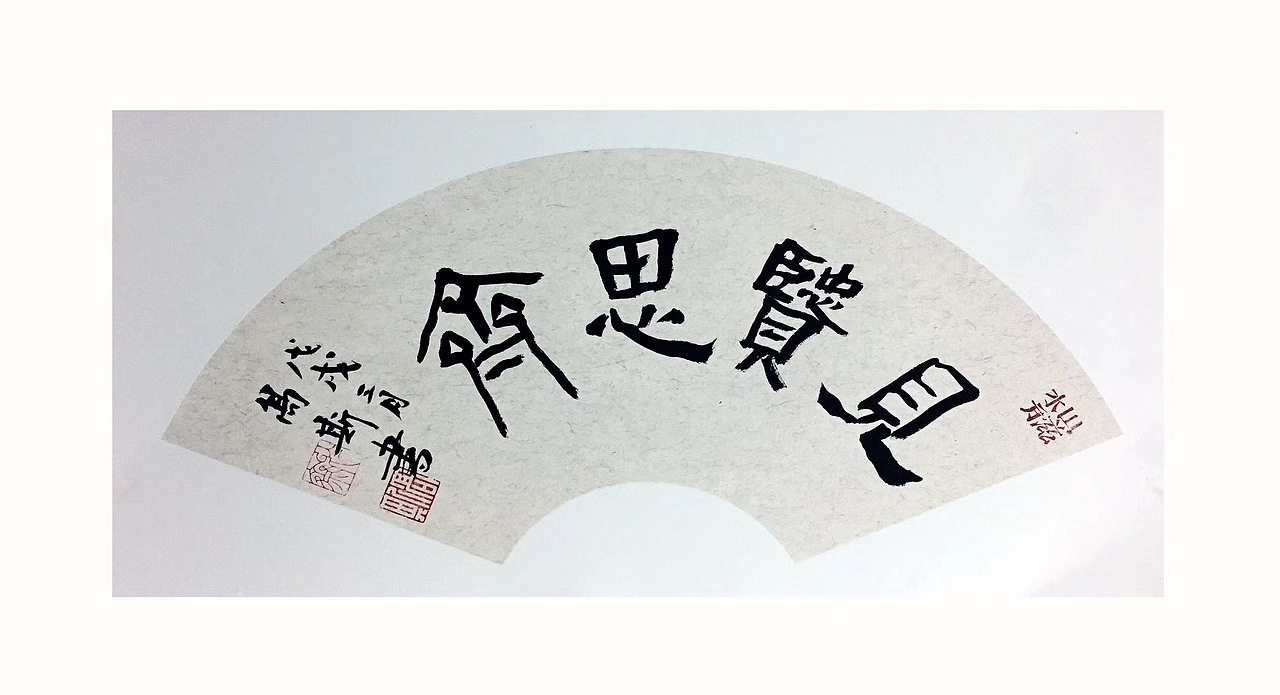 見賢思齊
戊戌三月
斯書